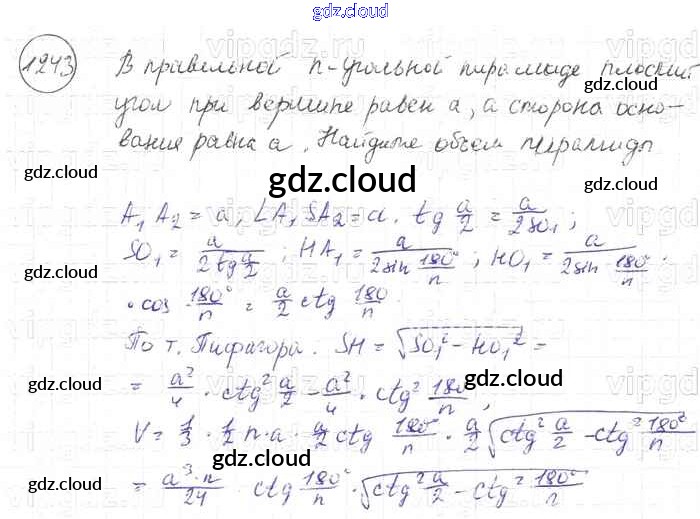 gdz.cloud
1243
В правильной n-угольной пирамиде плоский
угол при вершине равен α, а сторона осно-
вания равна a. Найдите объем пирамиды
gdz.cloud
gdz.cloud
gdz.cloud
gdz.cloud
A₁A₂ = a; ∠A₁SA₂ = α. tg α/2 = a/2SO₁;
gdz.cloud
SO₁ = a/(2tg α/2); HA₁ = a/(2sin 180°/n); HO₁ = a/(2sin 180°/n) ·
gdz.cloud
· cos 180°/n = a/2 ctg 180/n.
gdz.cloud
По т. Пифагора. SH = √(SO₁² - HO₁²) =
gdz.cloud
= a²/4 · ctg² α/2 - a²/4 · ctg² 180°/n;
gdz.cloud
V = 1/3 · 1/2 n · a · a/2 ctg 180°/n · a/2 √(ctg² α/2 - ctg² 180°/n)
gdz.cloud
= a³·n/24 · ctg 180°/n · √(ctg² α/2 - ctg² 180°/n)
gdz.cloud
gdz.cloud
gdz.cloud